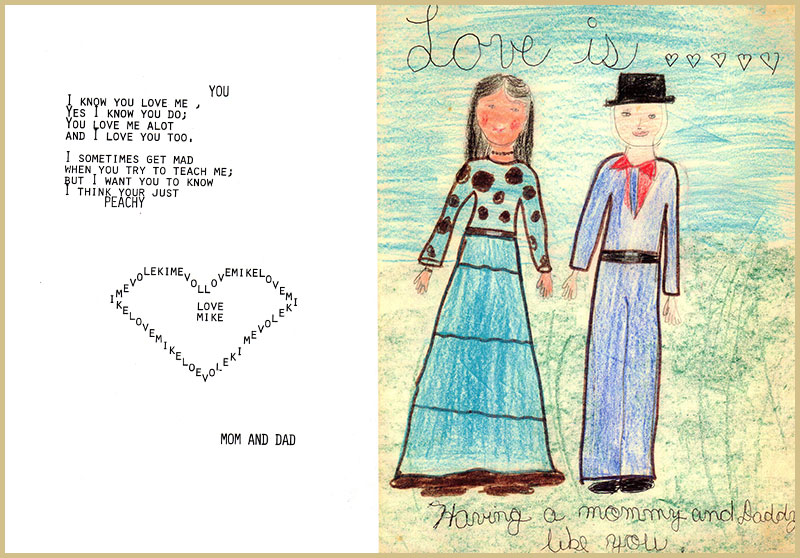 YOU
I KNOW YOU LOVE ME ,
YES I KNOW YOU DO;
YOU LOVE ME ALOT
AND I LOVE YOU TOO.
I SOMETIMES GET MAD
WHEN YOU TRY TO TEACH ME;
BUT I WANT YOU TO KNOW
I THINK YOUR JUST
PEACHY
IMEVOLEKIMEVOLLOVEMIKELOVEMI
LOVE
MIKE
KELOVEMIKELOEVOLEKIMEVOLEK
MOM AND DAD
Love is .....
Having a mommy and Daddy
like you